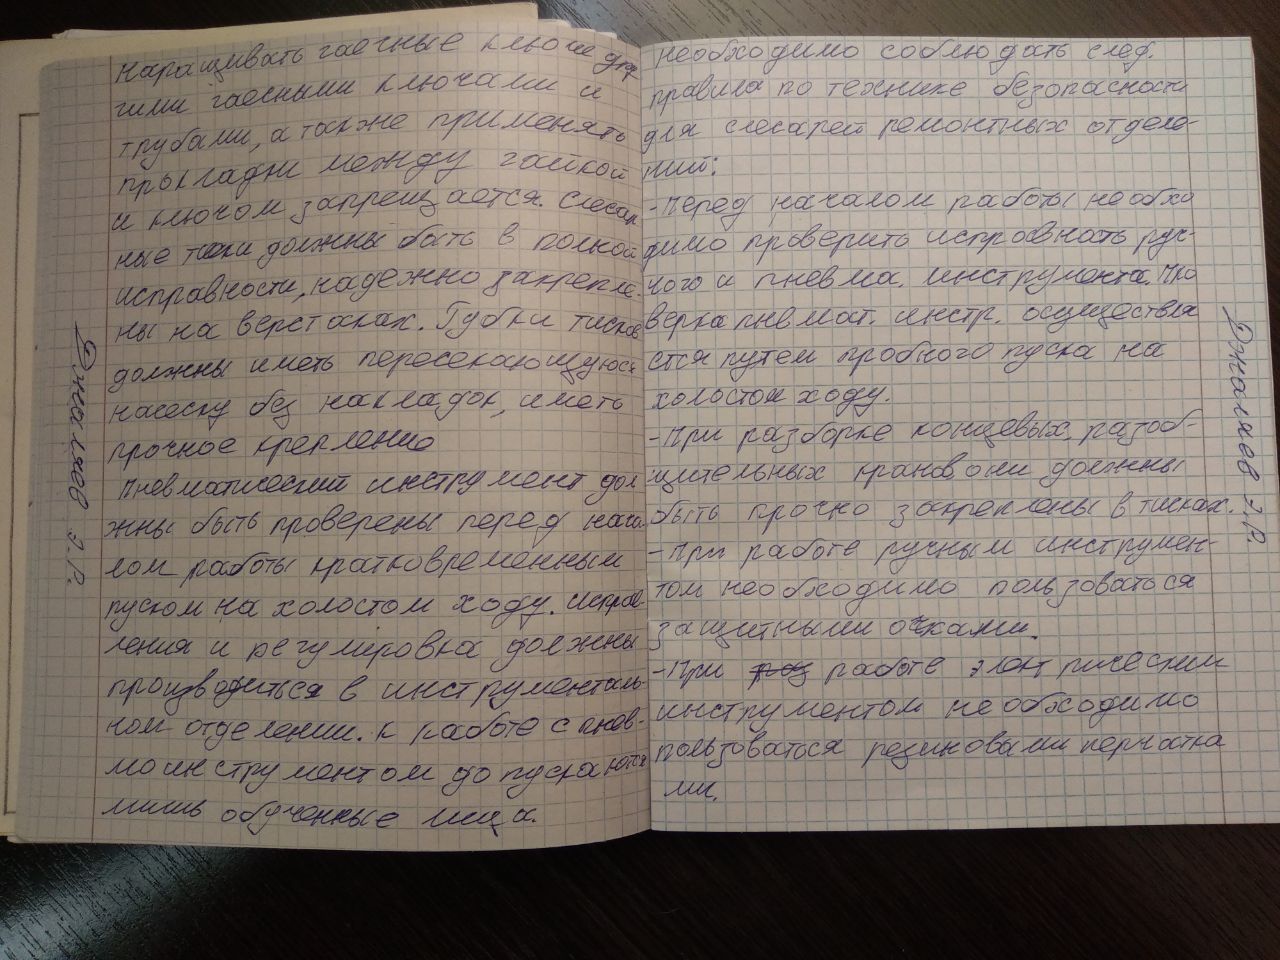 Наращивать гаечные ключи дру
гими гаечными ключами и
трубами, а также применять
прокладки между гайкой
и ключом запрещается. Слесар
ные тиски должны быть в полной
исправности, надежно закрепле-
ны на верстаках. Губки тисков
должны иметь пересекающуюся
насеку без накладок, иметь
прочное крепление
Пневматический инструмент дол
жны быть проверены перед нача
лом работы кратковременным
пуском на холостом ходу. исправ-
ления и регулировка должны
производиться в инструменталь-
ном отделении. к работе с пнев-
моинструментом допускаются
лишь обученные лица.
Джалжев Э.Р.
необходимо соблюдать след.
правила по технике безопасности
для слесарей ремонтных отделе-
ний:
-Перед началом работы необхо
димо проверить исправность руч-
ного и пневма. инструмента. Про
верка пневмат. инстр. осуществля
ется путем пробного пуска на
холостом ходу.
-При разборке концевых, разоб-
щительных кранов они должны
быть прочно закреплены в тисках.
-При работе ручным инструмен-
том необходимо пользоваться
защитными очками.
-При раз работе электрическим
инструментом необходимо
пользоваться резиновами перчатка
ми.
Джалжев Э.Р.